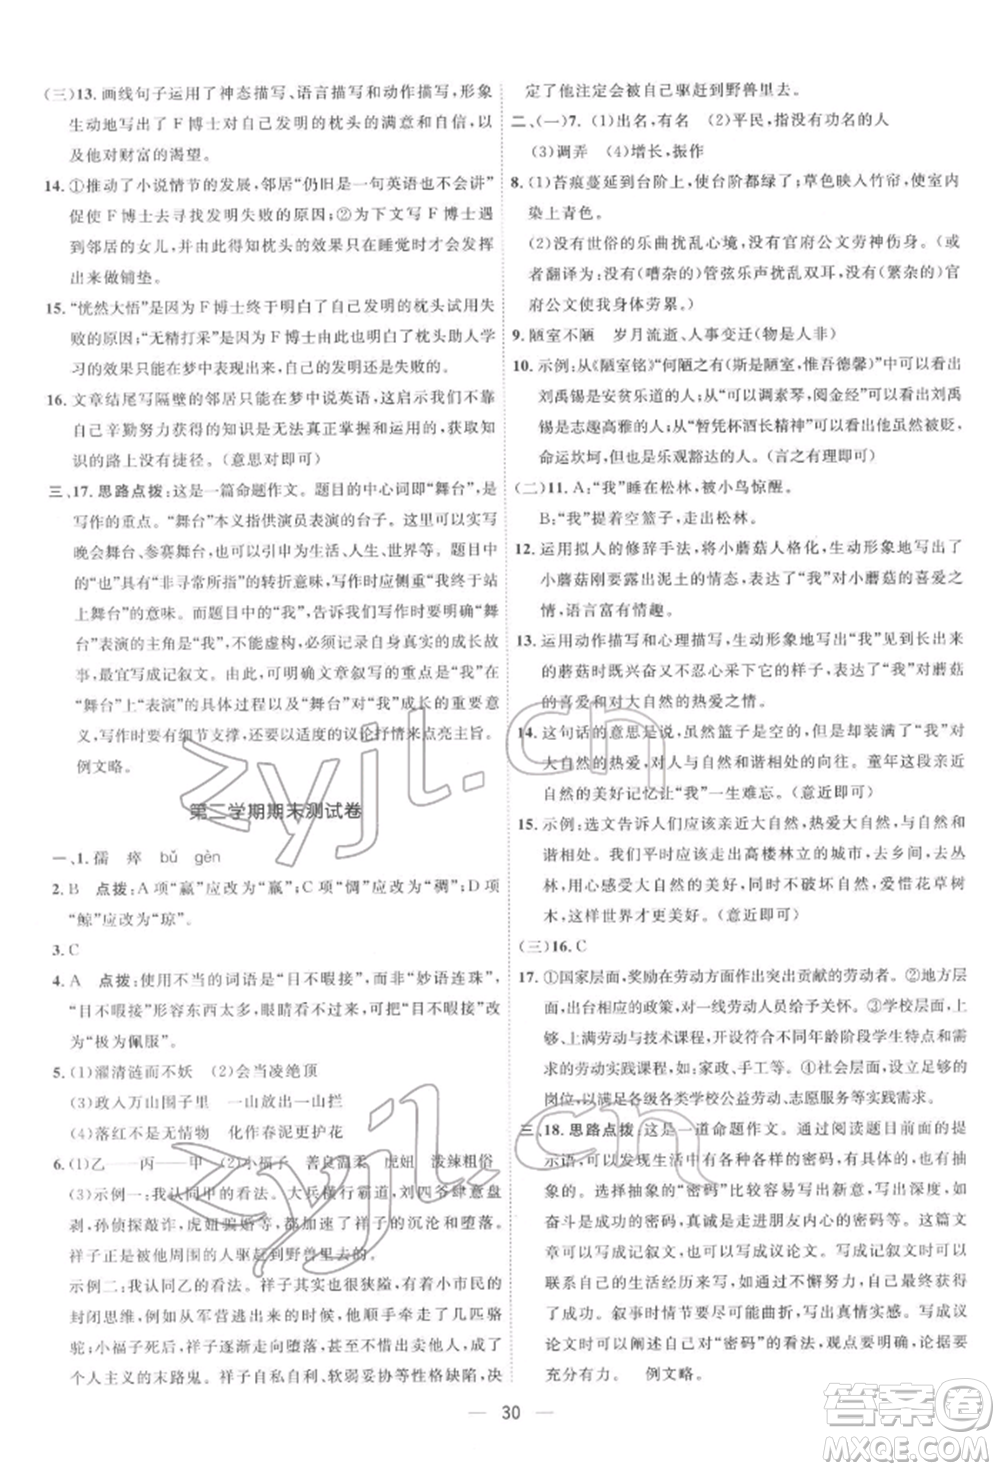 (三)13. 画线句子运用了神态描写、语言描写和动作描写,形象
生动地写出了F博士对自己发明的枕头的满意和自信,以
及他对财富的渴望。
14. ①推动了小说情节的发展,邻居“仍旧是一句英语也不会讲”
促使F博士去寻找发明失败的原因;②为下文写F博士遇
到邻居的女儿,并由此得知枕头的效果只在睡觉时才发挥
出来做铺垫。
15. “恍然大悟”是因为F博士终于明白了自己发明的枕头试用失
败的原因;“无精打采”是因为F博士明白了枕头助人学
习的效果只在梦中有体现,自己的发明还是失败的。
16. 文章结尾写隔壁的邻居只能在梦中说英语,这启示我们不靠
自己辛勤努力获得的知识是无法真正掌握和运用的,求知
识的路上没有捷径。(意思对即可)
三、17. 思路点拨:这是一篇命题作文。题目的中心词即“舞台”,是
写作的重点。“舞台”本义指供演员表演的台子。这里可以写
晚会舞台、参赛舞台,也可以引申为生活、人生、世界。题目中
的“也”具有“非寻常所指”的转折意味,写作时应侧重“我终于站
上舞台”的意味。而题目中的“我”,告诉我们写作时必须写清“舞
台”表演的主角是“我”,不能虚构,必须试着写自己的成长故
事,最宜写成记叙文。题目也明确了文章叙写的重点是“我”在
“舞台”上“表演”的过程。为突出“舞台”对“我”成长的重要意
义,写作时要有细节支撑,还要以适度的议论抒情来点亮主旨。
例文略。
第二学期期末测试卷
一、1. 孺 瘁 bǔ gèn
2. B 点拨:A项“赢”应改为“嬴”;C项“惆”应改为“稠”;D项
“鲸”应改为“琼”。
3. C
4. A 点拨:使用不当的词语是“目不暇接”,而非“妙语连珠”,
“目不暇接”形容东西太多,眼睛看不过来,可把“目不暇接”
改为“极为佩服”。
5. (1)濯清涟而不妖 (2)会当凌绝顶
(3)政入万山围子里 一山放出一山拦
(4)落红不是无情物 化作春泥更护花
6. (1)乙——丙——甲 (2)小福子 善良温柔 虎妞 泼辣粗俗
(3)示例一:我认同甲的看法。大兵横行霸道,刘四爷肆意盘
剥,孙侦探敲诈,虎妞骗婚等,都导致了祥子的沉沦和堕落。
祥子正是被他周围的人驱赶到野兽里去的。
示例二:我认同乙的看法。祥子其实也很狭隘,有着小市民的
封闭思维,比如从军营逃出来的时候,他顺手牵走了几匹骆
驼;小福子死后,祥子逐渐变得麻木、潦倒、狡猾、自暴自弃,成了
个人主义的末路鬼。祥子自私自利、软弱可欺的性格缺陷,决
定了他注定会被自己驱赶到野兽里去。
二、(一)7. (1)出名,有名 (2)平民,指没有功名的人
(3)调弄 (4)增长,振作
8. (1)苔痕蔓延到台阶上,使台阶都绿了;草色映入竹帘,使室内
染上青色。
(2)没有世俗的乐曲扰乱心境,没有官府公文劳神伤身。(或
者翻译为:没有(嘈杂的)管弦乐声扰乱双耳,没有(繁杂的)官
府公文使我身体劳累。)
9. 陋室不陋 岁月流逝、人事变迁(物是人非)
10. 示例:从《陋室铭》“何陋之有(斯是陋室,惟吾德馨)”中可以看出
刘禹锡是安贫乐道的人;从“可以调素琴,阅金经”可以看出刘禹
锡是志趣高雅的人;从“暂凭杯酒长精神”可以看出刘禹锡虽然
命运坎坷,但也是乐观豁达的人。
(二)11. A:“我”睡在松林,被小鸟惊醒。
B:“我”提着空篮子,走出松林。
12. 运用拟人的修辞手法,将小蘑菇人格化,生动形象地写出了
小蘑菇刚刚露出泥土的情态,表达了“我”对小蘑菇的喜爱之
情,语言富有情趣。
13. 运用动作描写和心理描写,生动形象地写出“我”见到长出来
的蘑菇时既兴奋又不忍心采下它的样子,表达了“我”对蘑菇
的喜爱和对大自然的热爱之情。
14. 这句话的意思是说,虽然篮子是空的,但却装满了“我”对大
自然的热爱,“我”与大自然和谐相处的欢愉。童年亲近大自
然的美好记忆让“我”一生难忘。
15. 示例:选文告诉人们应该亲近大自然,热爱大自然,与大自然和
谐相处。我们平时应该多走出高楼林立的城市,去乡间,去
郊外,感受大自然的美好,不破坏大自然,爱惜花草树
木,这样世界才更美好。(意近即可)
(三)16. C
17. ①国家层面,奖励在劳动方面作出突出贡献的劳动者。②地方层
面,出台相应的政策,对一线劳动人员给予关怀。③学校层面,上
够、上满劳动与技术课程,开设一些针对不同年龄阶段学生特点和
需求的劳动实践课程,如:家政、手工等。④社会层面,相应
岗位,以满足各级各类学校公益劳动、志愿服务等实践需求。
三、18. 思路点拨:这是一道命题作文。通过阅读题目前面的提
示语,可以写出许多不同的密码,可以是具体的,也可以是抽
象的。选择抽象的“密码”比较容易写出新意,写出深度,如
奋斗是成功的密码,真诚是走进朋友内心的密码等。这篇文
章可以写成记叙文,也可以写成议论文。写成记叙文时可以
联系自己的生活经历,写自己如何破解“密码”,最终获得
了成功。叙事时情节要尽可能曲折,写出真情实感。写成议
论文时可以阐述自己对“密码”的看法,观点要明确,论据也
要充分有力。 例文略。
30
zyjl.cn
zyjl.cn
答案圈
MXQE.COM